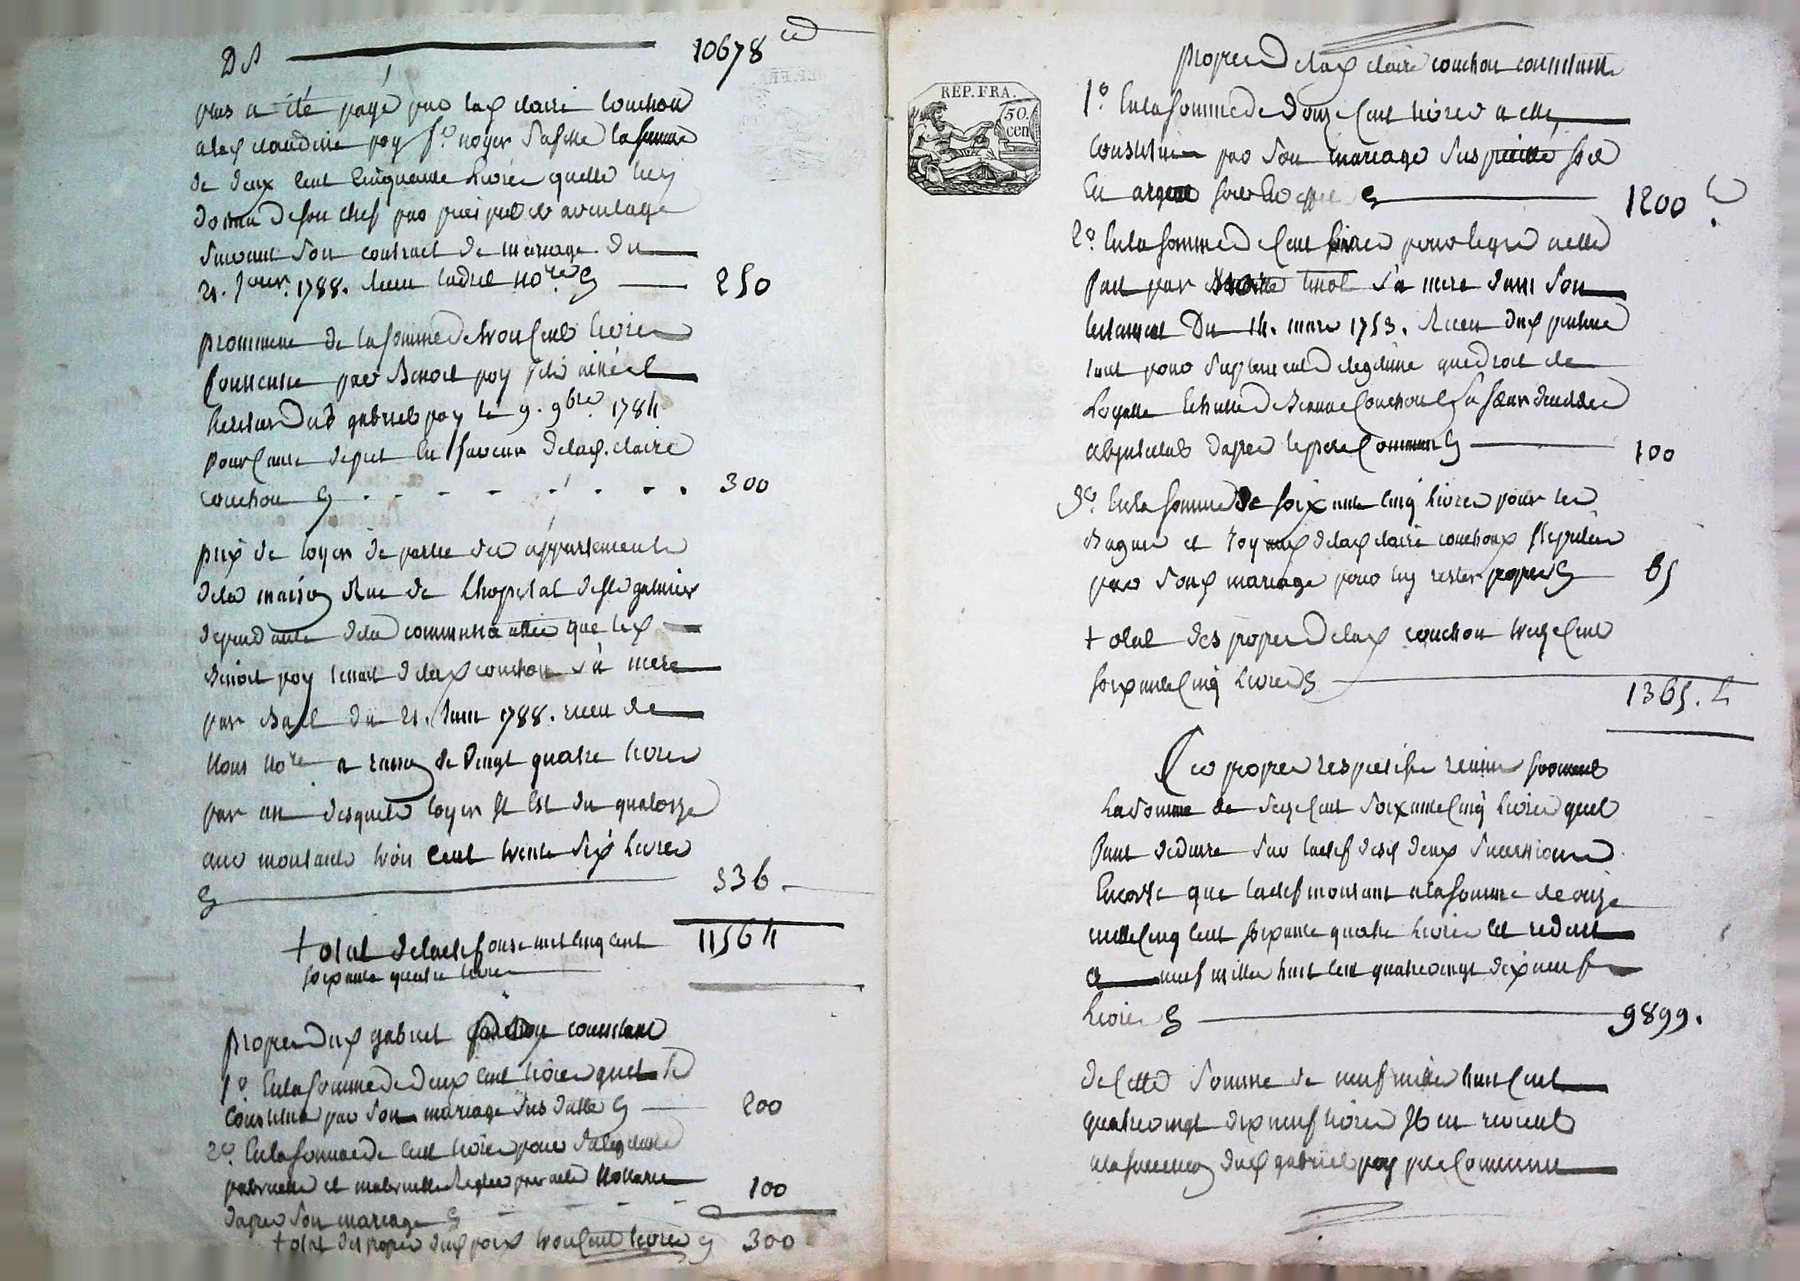 D. P. 10678
plus a été payé par lad. claire couchou
a lad. claudine poy f.e noyer sa fille la somme
de deux cent cinquante livres quelle luy
donna de son chef par preciput et avantage
suivant son contract de mariage du
21. Janv.r 1788. Recu ledit no.re 250
promesse de la somme de trois cent livres
consentie par Benoit poy fils ainé et
heritier dud. gabriel poy le 9. 9bre 1784
pour cause de pret en faveur de lad. claire
couchou 300
prix de loyer de partie des appartements
de la maison Rue de L'hopital de St galmier
dépendante de la communauté que led.
Benoit poy tenoit de lad. couchou sa mere
par Bail du 21. Juin 1788. recu de
Nous no.re a raison de vingt quatre livres
par an desquels loyer il est du quatorze
ans montants trois cent trente six livres
336
total de l'actif onze mil cinq cent 11564
soixante quatre livres
propres dud. gabriel constant
1.o En la somme de deux cent livres quil se
constitua par son mariage sus datté 200
2.o En la somme de cent livres pour sa legitime
paternelle et maternelle Reglée par acte Nottarié 100
dapres son mariage
total des propres dud. poy trois cent livres 300
propres de lad. claire couchou consistants
REP. FRA.
50.
cen
1.o En la somme de douze cent livres a elle
constituée par son mariage sus soit
En argent soit En effets 1200
2.o En la somme de cent livres pour legs a elle
fait par sa mere dans son
testament Du 14. mars 1753. Recu
tant pour suplement de legitime que droit de
la sœur decedée
abjntestat dapres le pere Commun 100
3.o En la somme de soixante cinq livres pour les
Bagues et Joyaux de lad. claire couchoux stipulés
par sond. mariage pour luy rester propres 65
total des propres de lad. couchou treize cent
soixante cinq livres
1365.
Ces propres respectifs reunis forment
La somme de seize cent soixante cinq livres quil
faut deduire sur l'actif desd. deux successions
En sorte que l'actif montant a la somme de onze
mille cinq cent soixante quatre livres est reduit
a neuf mille huit cent quatre vingt dix neuf
livres 9899.
de Cette somme de neuf mille huit Cent
quatre vingt dix neuf livres Il en revient
a la succession dud. gabriel poy pere Commun